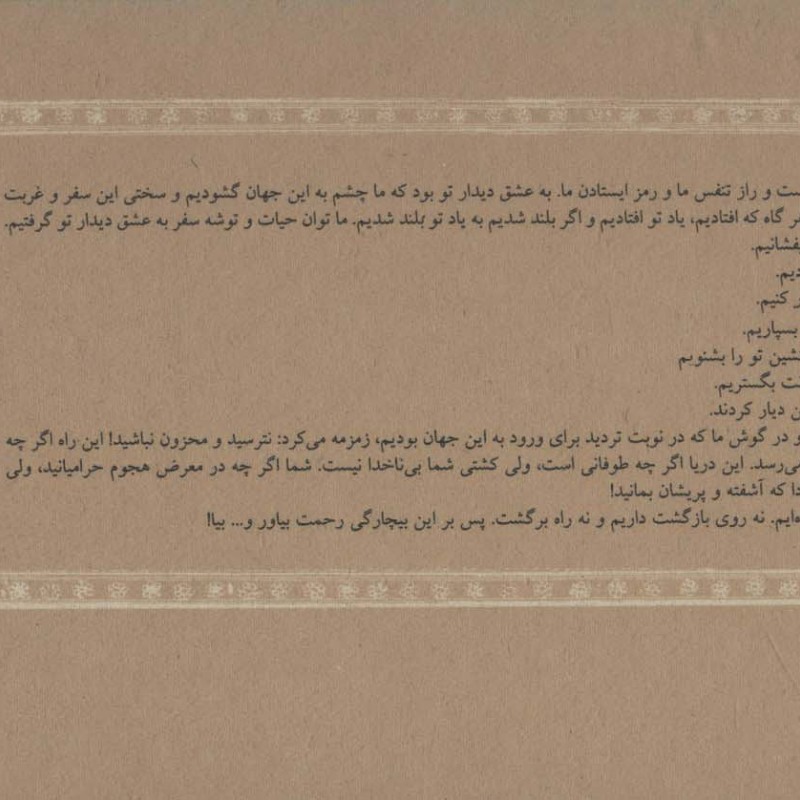 و راز تنفس ما و رمز ایستادن ما. به عشق دیدار تو بود که ما چشم به این جهان گشودیم و سختی این سفر و غربت
گاه که افتادیم، یاد تو افتادیم و اگر بلند شدیم به یاد تو بلند شدیم. ما توان حیات و توشه سفر به عشق دیدار تو گرفتیم.
کنیم.
بسپاریم.
تو را بشنویم
بگستریم.
دیار کردند.
و در گوش ما که در نوبت تردید برای ورود به این جهان بودیم، زمزمه می‌کرد: نترسید و محزون نباشید! این راه اگر چه
می‌رسد. این دریا اگر چه طوفانی است، ولی کشتی شما بی‌ناخدا نیست. شما اگر چه در معرض هجوم حرامیانید، ولی
که آشفته و پریشان بمانید!
نه روی بازگشت داریم و نه راه برگشت. پس بر این بیچارگی رحمت بیاور و... بیا!